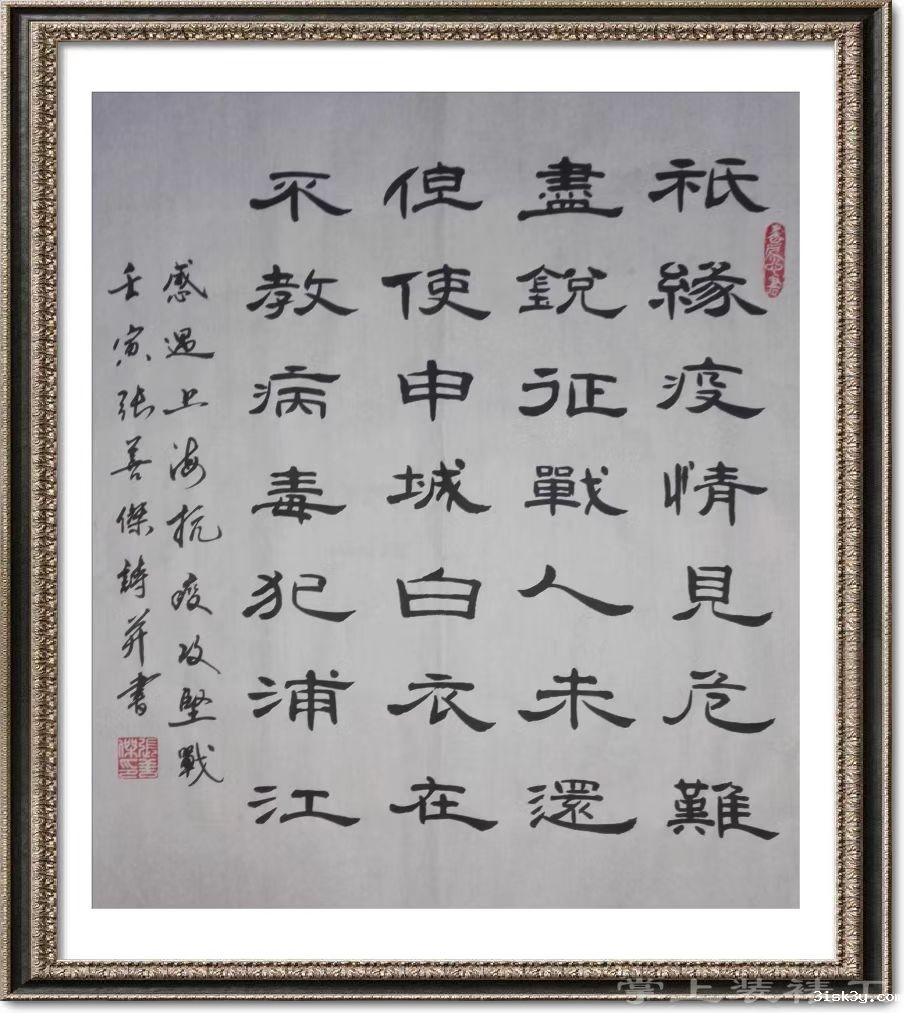 祇緣疫情見危難
盡銳征戰人未還
但使申城白衣在
不教病毒犯浦江
感遇上海抗疫攻堅戰
壬寅张善傑詩并書
張善傑印
掌上装裱
3isk3y.com